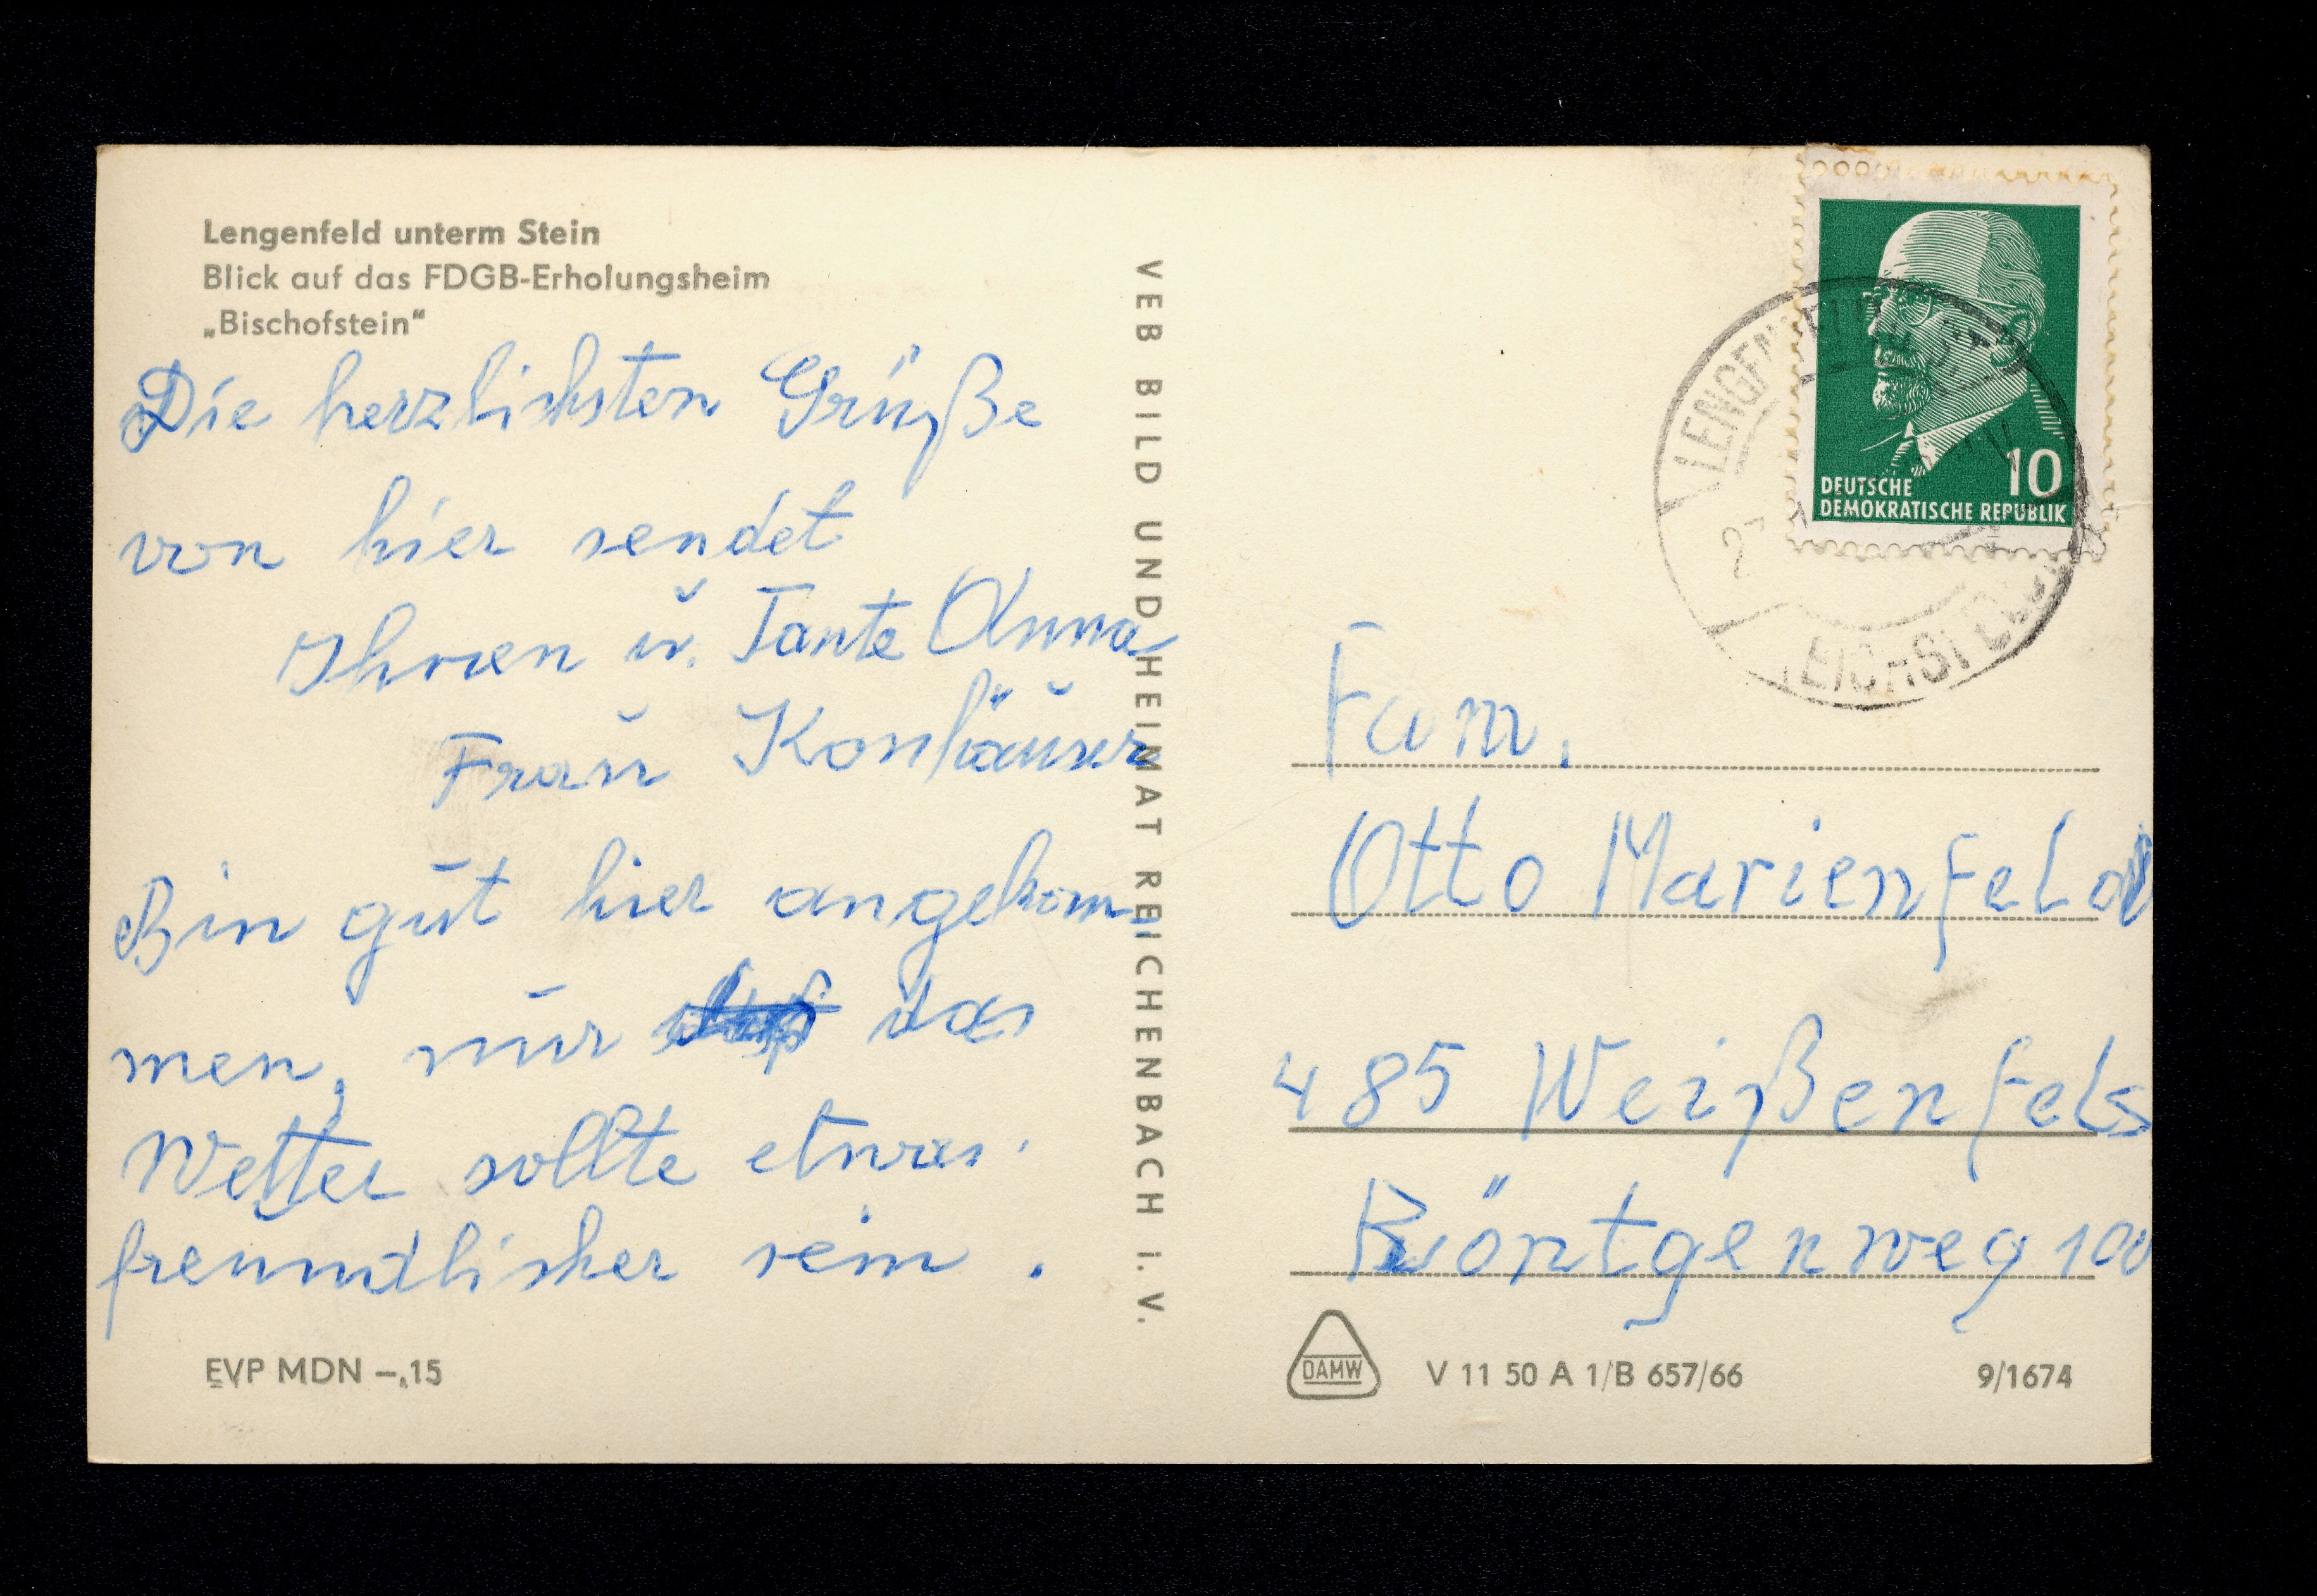 Lengenfeld unterm Stein
Blick auf das FDGB-Erholungsheim
„Bischofstein“
Die herzlichsten Grüße
von hier sendet
Ihnen u. Tante Anna
Frau
Bin gut hier angekom-
men, nur das
Wetter sollte etwas
freundlicher sein.
EVP MDN –,15
VEB BILD UND HEIMAT REICHENBACH I. V.
10
DEUTSCHE
DEMOKRATISCHE REPUBLIK
Fam.
Otto Marienfeld
485 Weißenfels
Röntgenweg 100
DAMW
V 11 50 A 1/B 657/66
9/1674